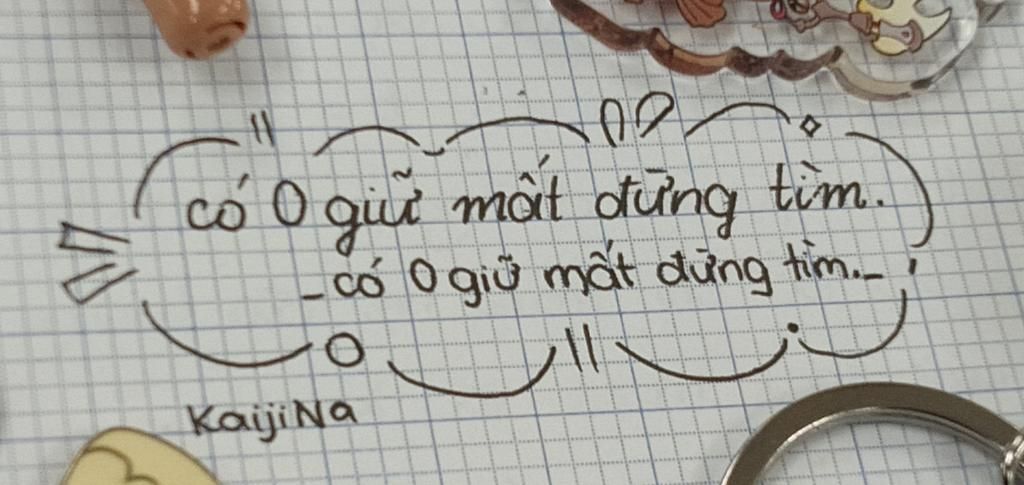 có 0 giữ mất đừng tìm.
_ có 0 giữ mất đừng tìm._
KaijiNa